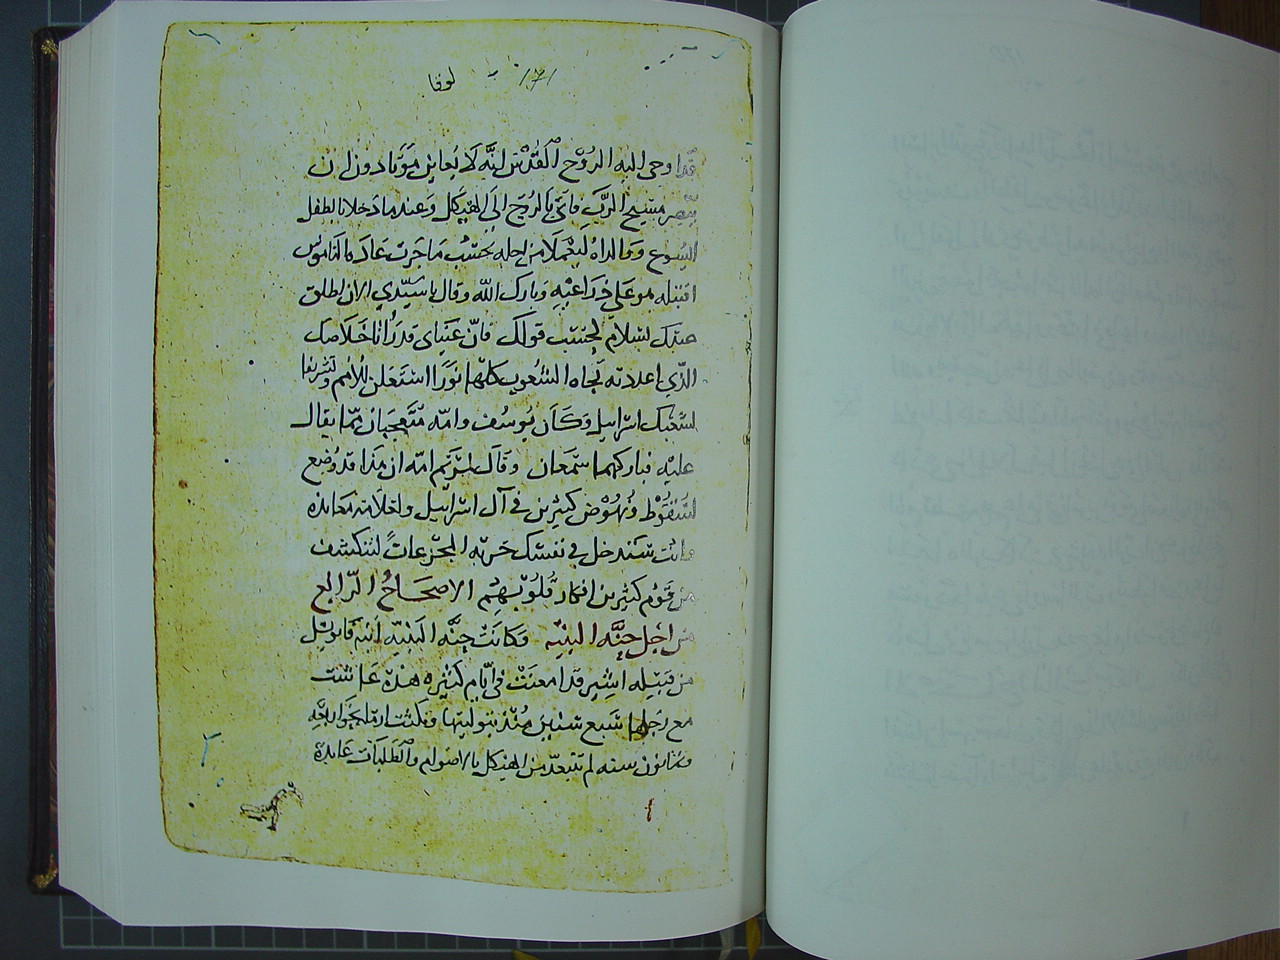 لوقا ١٧١
قد اوحى اليه الروح القدس انه لا يعاين موتا دون ان
يبصر مسيح الرب فاتى بالروح الى الهيكل وعند ما دخلا بالطفل
اليسوع والداه ليعملا من اجله بحسب ما جرت عادة الناموس
اقتبله هو على ذراعيه وبارك الله وقال يا سيدي الان اطلق
عبدك بسلام بحسب قولك فان عيناى قد راتا خلاصك
الذي اعددته تجاه الشعوب كلها نورا استعلن للامم وتشريفا
لشعبك اسراييل وكان يوسف وامه متعجبان مما يقال
عليه فباركهما سمعان وقال لمريم امه ان هذا قد وضع
لسقوط ونهوض كثيرين في آل اسراييل ولعلامة معانده
وانت ستدخل في نفسك حربه لتنكشف
من قوم كثيرين افكار قلوبهم الاصحاح الرابع
من اجل حنه النبيه وكانت حنه النبيه ابنة فانوييل
من قبيله اشير قد امعنت في ايام كثيره هذه عاشت
مع رجلها سبع سنين منذ بتوليتها ومكثت ارملة نحو اربعه
وثمانون سنه لم تتبعد من الهيكل بالاصوام والطلبات عابدة